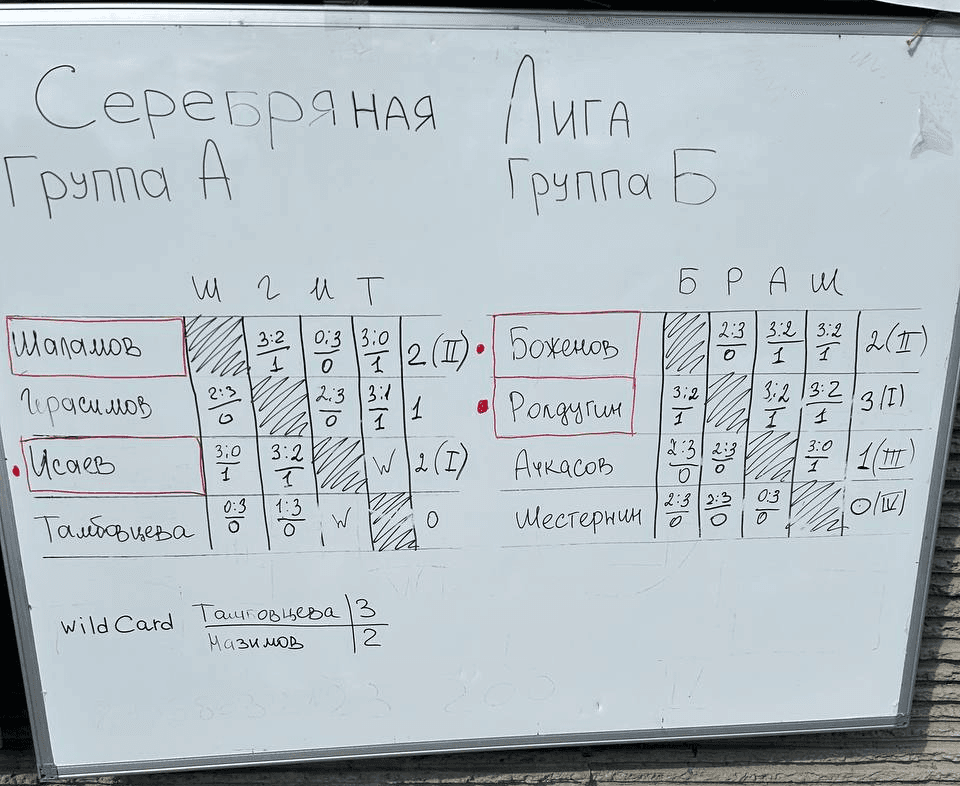 Серебряная Лига
Группа А
Группа Б
Ш Г И Т
Шаламов 3:2/1 0:3/0 3:0/1 2(II)
Герасимов 2:3/0 2:3/0 3:1/1 1
Исаев 3:0/1 3:2/1 W 2(I)
Тамбовцева 0:3/0 1:3/0 W 0
Б Р А Ш
Боженов 2:3/0 3:2/1 3:2/1 2(II)
Ролдугин 3:2/1 3:2/1 3:2/1 3(I)
Ачкасов 2:3/0 2:3/0 3:0/1 1(III)
Шестернин 2:3/0 2:3/0 0:3/0 0(IV)
wild Card Тамбовцева 3
Мазимов 2